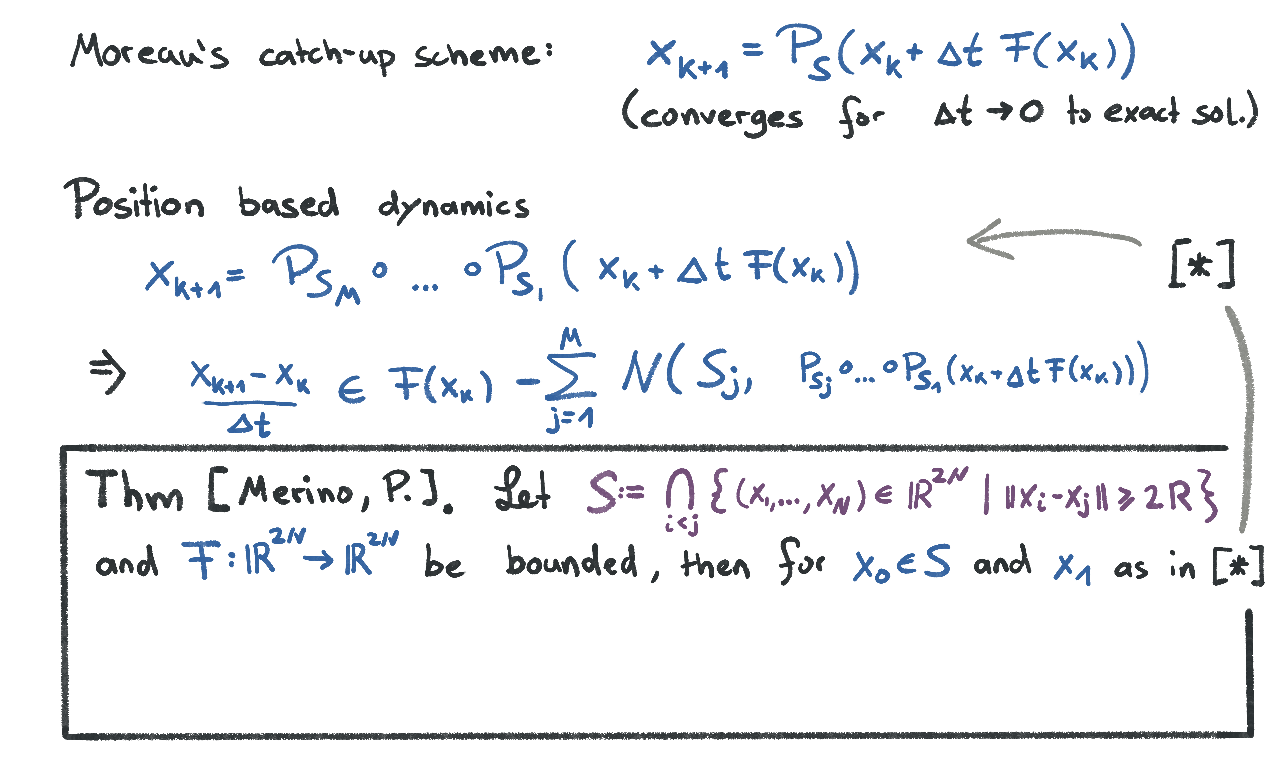 Moreau's catch-up scheme: x_{k+1} = P_S(x_k + Δt F(x_k))
(converges for Δt → 0 to exact sol.)
Position based dynamics
x_{k+1} = P_{S_M} ∘ ... ∘ P_{S_1} ( x_k + Δt F(x_k)) [*]
⇒ \frac{x_{k+1} - x_k}{Δt} ∈ F(x_k) - \sum_{j=1}^{M} N( S_j, P_{S_j} ∘ ... ∘ P_{S_1}(x_k + Δt F(x_k)))
Thm [Merino, P.]. Let S := ⋂_{i<j} { (x_1, ..., x_N) ∈ ℝ^{2N} | ||x_i - x_j|| ⩾ 2R }
and F : ℝ^{2N} → ℝ^{2N} be bounded, then for x_0 ∈ S and x_1 as in [*]